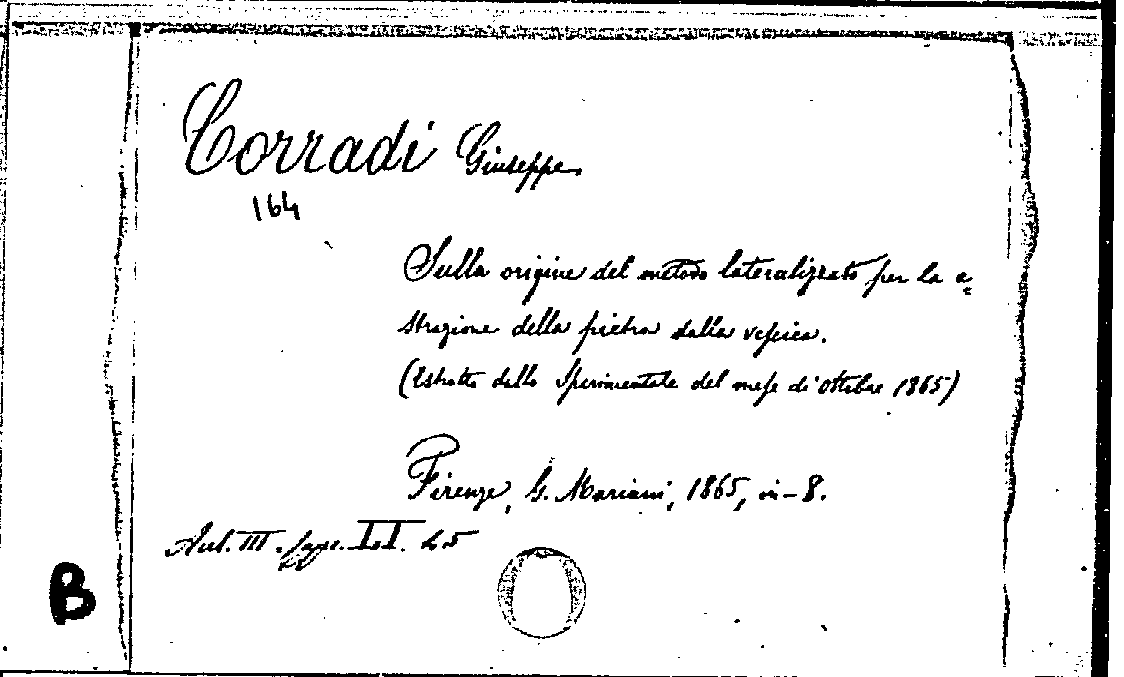 Corradi Giuseppe
164
Sulla origine del metodo lateralizzato per la e=
strazione della pietra dalla vessica.
(Estratto dallo Sperimentale del mese di Ottobre 1865)
Firenze, G. Mariani, 1865, in-8.
III. 45
B